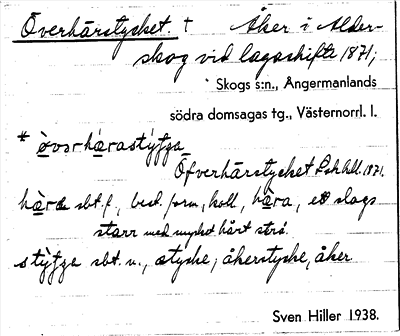 Överhärstycket. † Åker i Alder-
skog vid lagaskifte 1871;
Skogs s:n., Ångermanlands
södra domsagas tg., Västernorrl. l.
* òvərhærastýʃʃa
Öfverhärstycket Lskhll. 1871.
sbt. f., best. form, koll, hæ̀ra, ett slags
starr med mycket hårt strå.
sbt. n., stycke; åkerstycke, åker
Sven Hiller 1938.